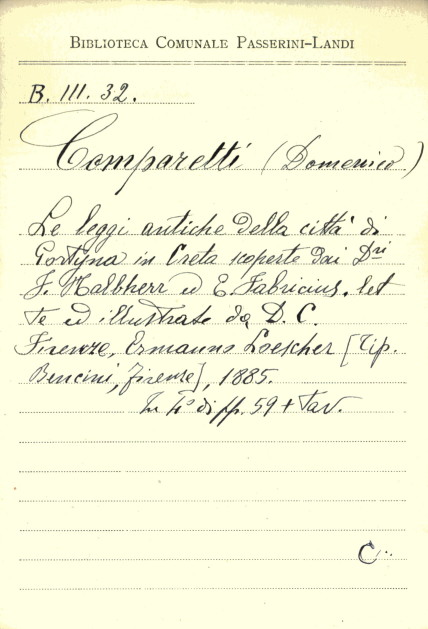 BIBLIOTECA COMUNALE PASSERINI-LANDI
B. III. 32.
Comparetti (Domenico)
Le leggi antiche della città di
Gortyna in Creta scoperte dai Dri
F. Halbherr ed E. Fabricius, let
te ed illustrate da D. C.
Firenze, Ermanno Loescher [Tip.
Bencini, Firenze], 1885.
In 4º di pp. 59 + Tav.
C.